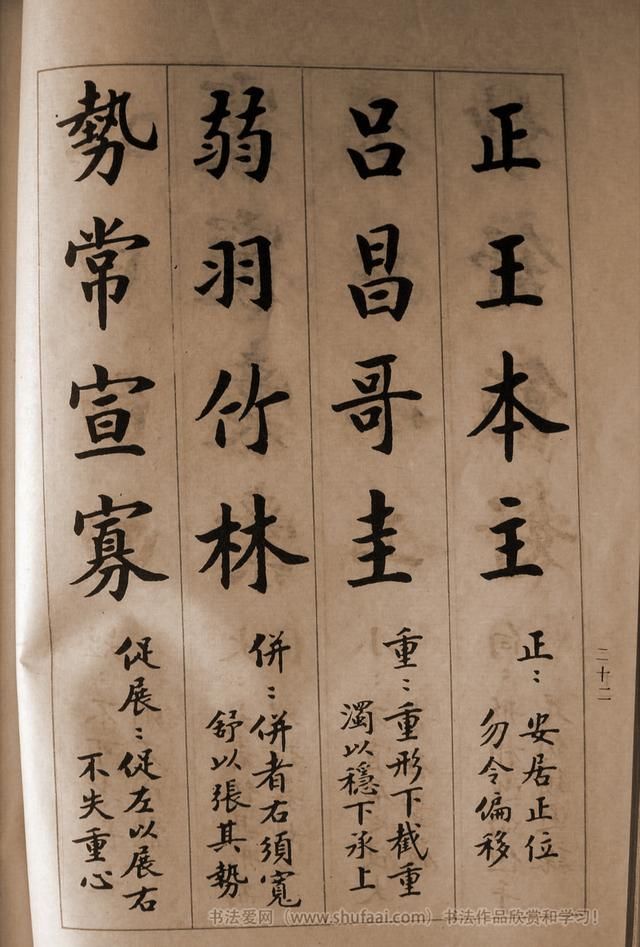 正王本主
正：安居正位
勿令偏移
呂昌哥圭
重：重形下截重
濁以穩下承上
弱羽竹林
併：併者右須寬
舒以張其勢
勢常宣寡
促展：促左以展右
不失重心
二十二
书法爱网（www.shufaai.com）书法作品欣赏和学习！